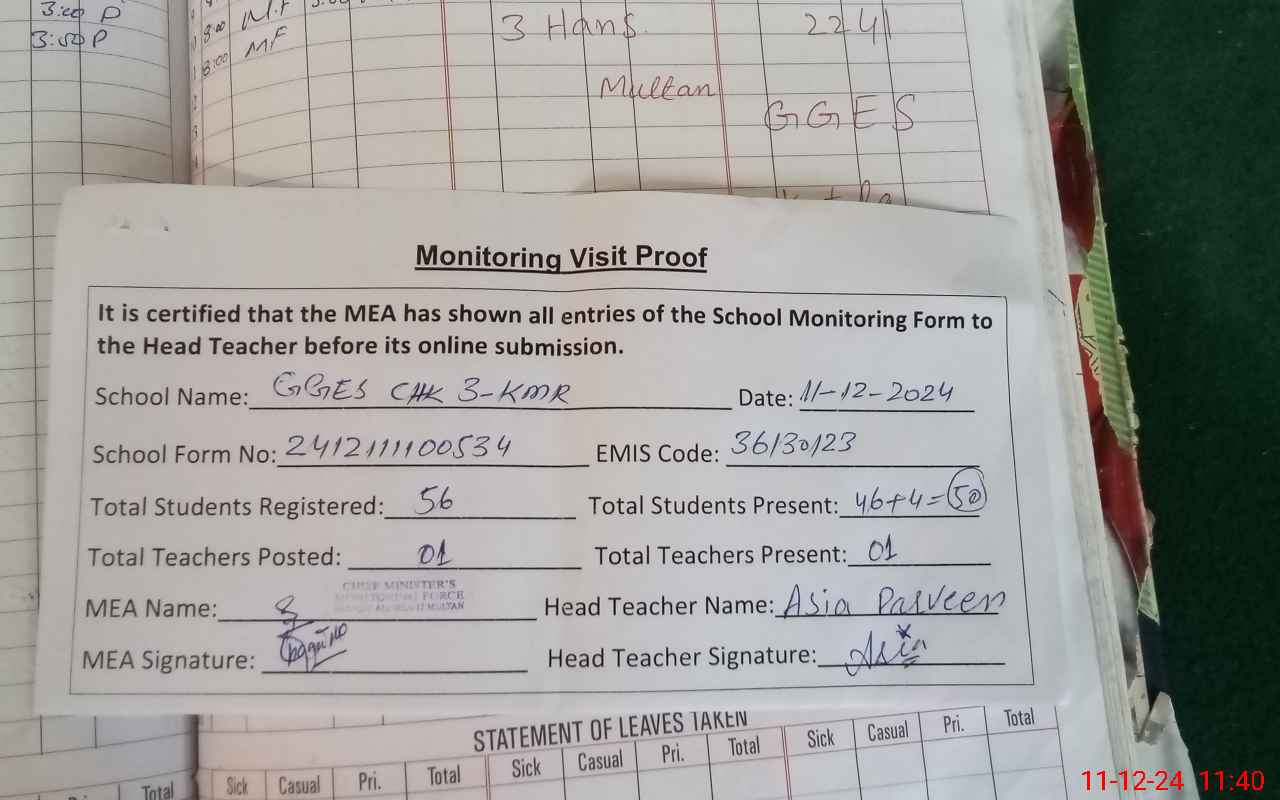 3:00 P
3:50 P
8:00 M.F
8:00 MF
3 Hans. 2241
Multan
GGES
Monitoring Visit Proof
It is certified that the MEA has shown all entries of the School Monitoring Form to
the Head Teacher before its online submission.
School Name: GGES CHK 3-KMR Date: 11-12-2024
School Form No: 2412111100534 EMIS Code: 36130123
Total Students Registered: 56 Total Students Present: 46+4=50
Total Teachers Posted: 01 Total Teachers Present: 01
CHIEF MINISTER'S
MONITORING FORCE
MULTAN
MEA Name: Head Teacher Name: Asia Parveen
MEA Signature: Head Teacher Signature: Asia
STATEMENT OF LEAVES TAKEN
Total Sick Casual Pri. Total Sick Casual Pri. Total Sick Casual Pri. Total
11-12-24 11:40